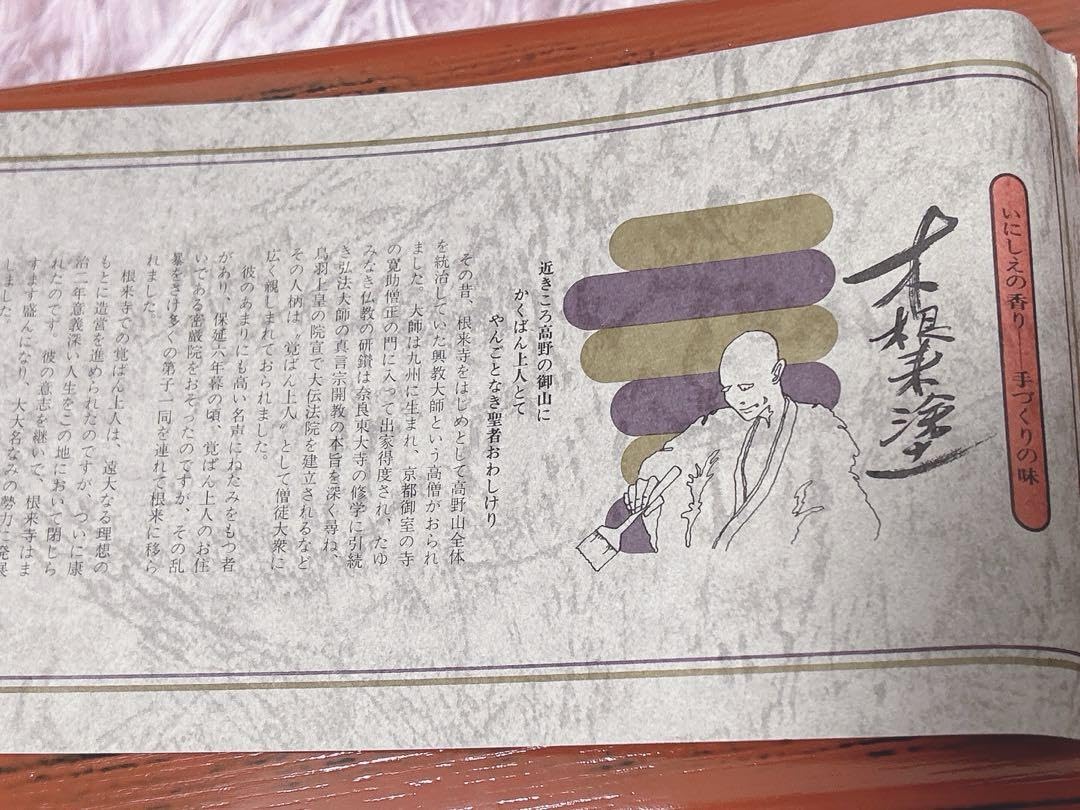 いにしえの香り――手づくりの味
木根来塗
近きころ高野の御山に
かくばん上人とて
やんごとなき聖者おわしけり
その昔、根来寺をはじめとして高野山全体
を統治していた興教大師という高僧がおられ
ました。大師は九州に生まれ、京都御室の寺
の寛助僧正の門に入って出家得度され、たゆ
みなき仏教の研鑽は奈良東大寺の修学に引続
き弘法大師の真言宗開教の本旨を深く尋ね、
鳥羽上皇の院宣で大伝法院を建立されるなど
その人柄は〝覚ばん上人〟として僧徒大衆に
広く親しまれておられました。
彼のあまりにも高い名声にねたみをもつ者
があり、保延六年暮の頃、覚ばん上人のお住
いである密厳院をおそったのですが、その乱
暴をさけ多くの第子一同を連れて根来に移ら
れました。
根来寺での覚ばん上人は、遠大なる理想の
もとに造営を進められたのですが、ついに康
治二年意義深い人生をこの地において閉じら
れたのです。彼の意志を継いで、根来寺はま
すます盛んになり、大大名なみの勢力に発展
しました。